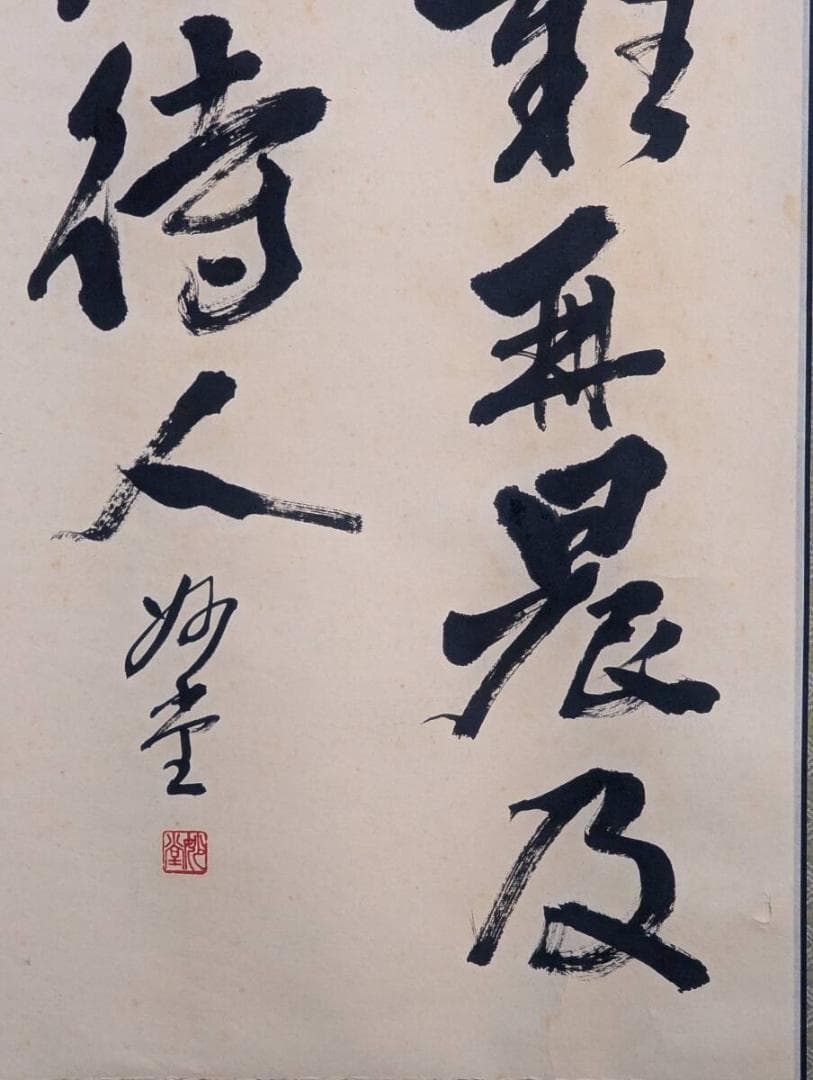 難再晨及
待人
妙堂
妙堂